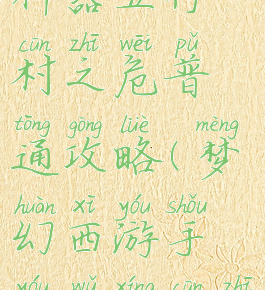 cūn zhī wēi pǔ
村之危普
tōng gōng lüè mèng
通攻略(梦
huàn xī yóu shǒu
幻西游手
yóu wǔ xíng cūn zhī